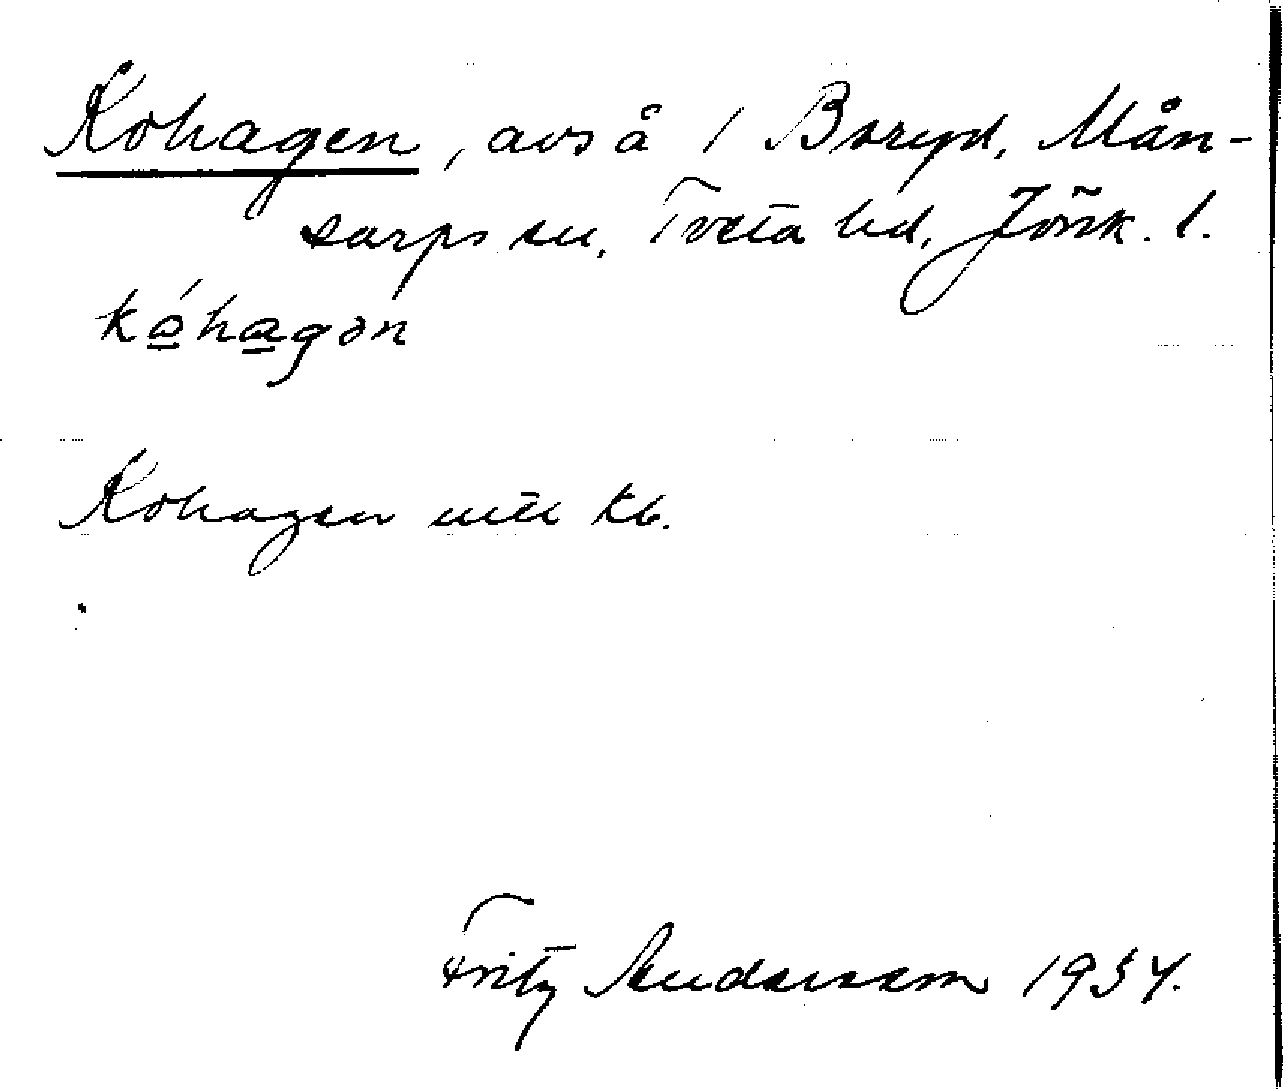 Kohagen, avs å / Boryd, Mån-
sarps sn, Tveta hd, Jönk. l.
kóhagən
Kohagen enl kb.
Fritz Andersson 1934.